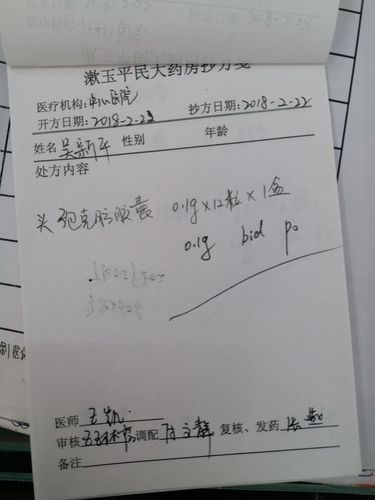 漱玉平民大药房抄方笺
医疗机构:中心医院
开方日期:2018-2-22 抄方日期:2018-2-22
姓名 吴新平 性别 年龄
处方内容
头孢克肟胶囊 0.1g×12粒×1盒
0.1g bid po
医师 王凯
审核 调配 文静 复核、发药
备注